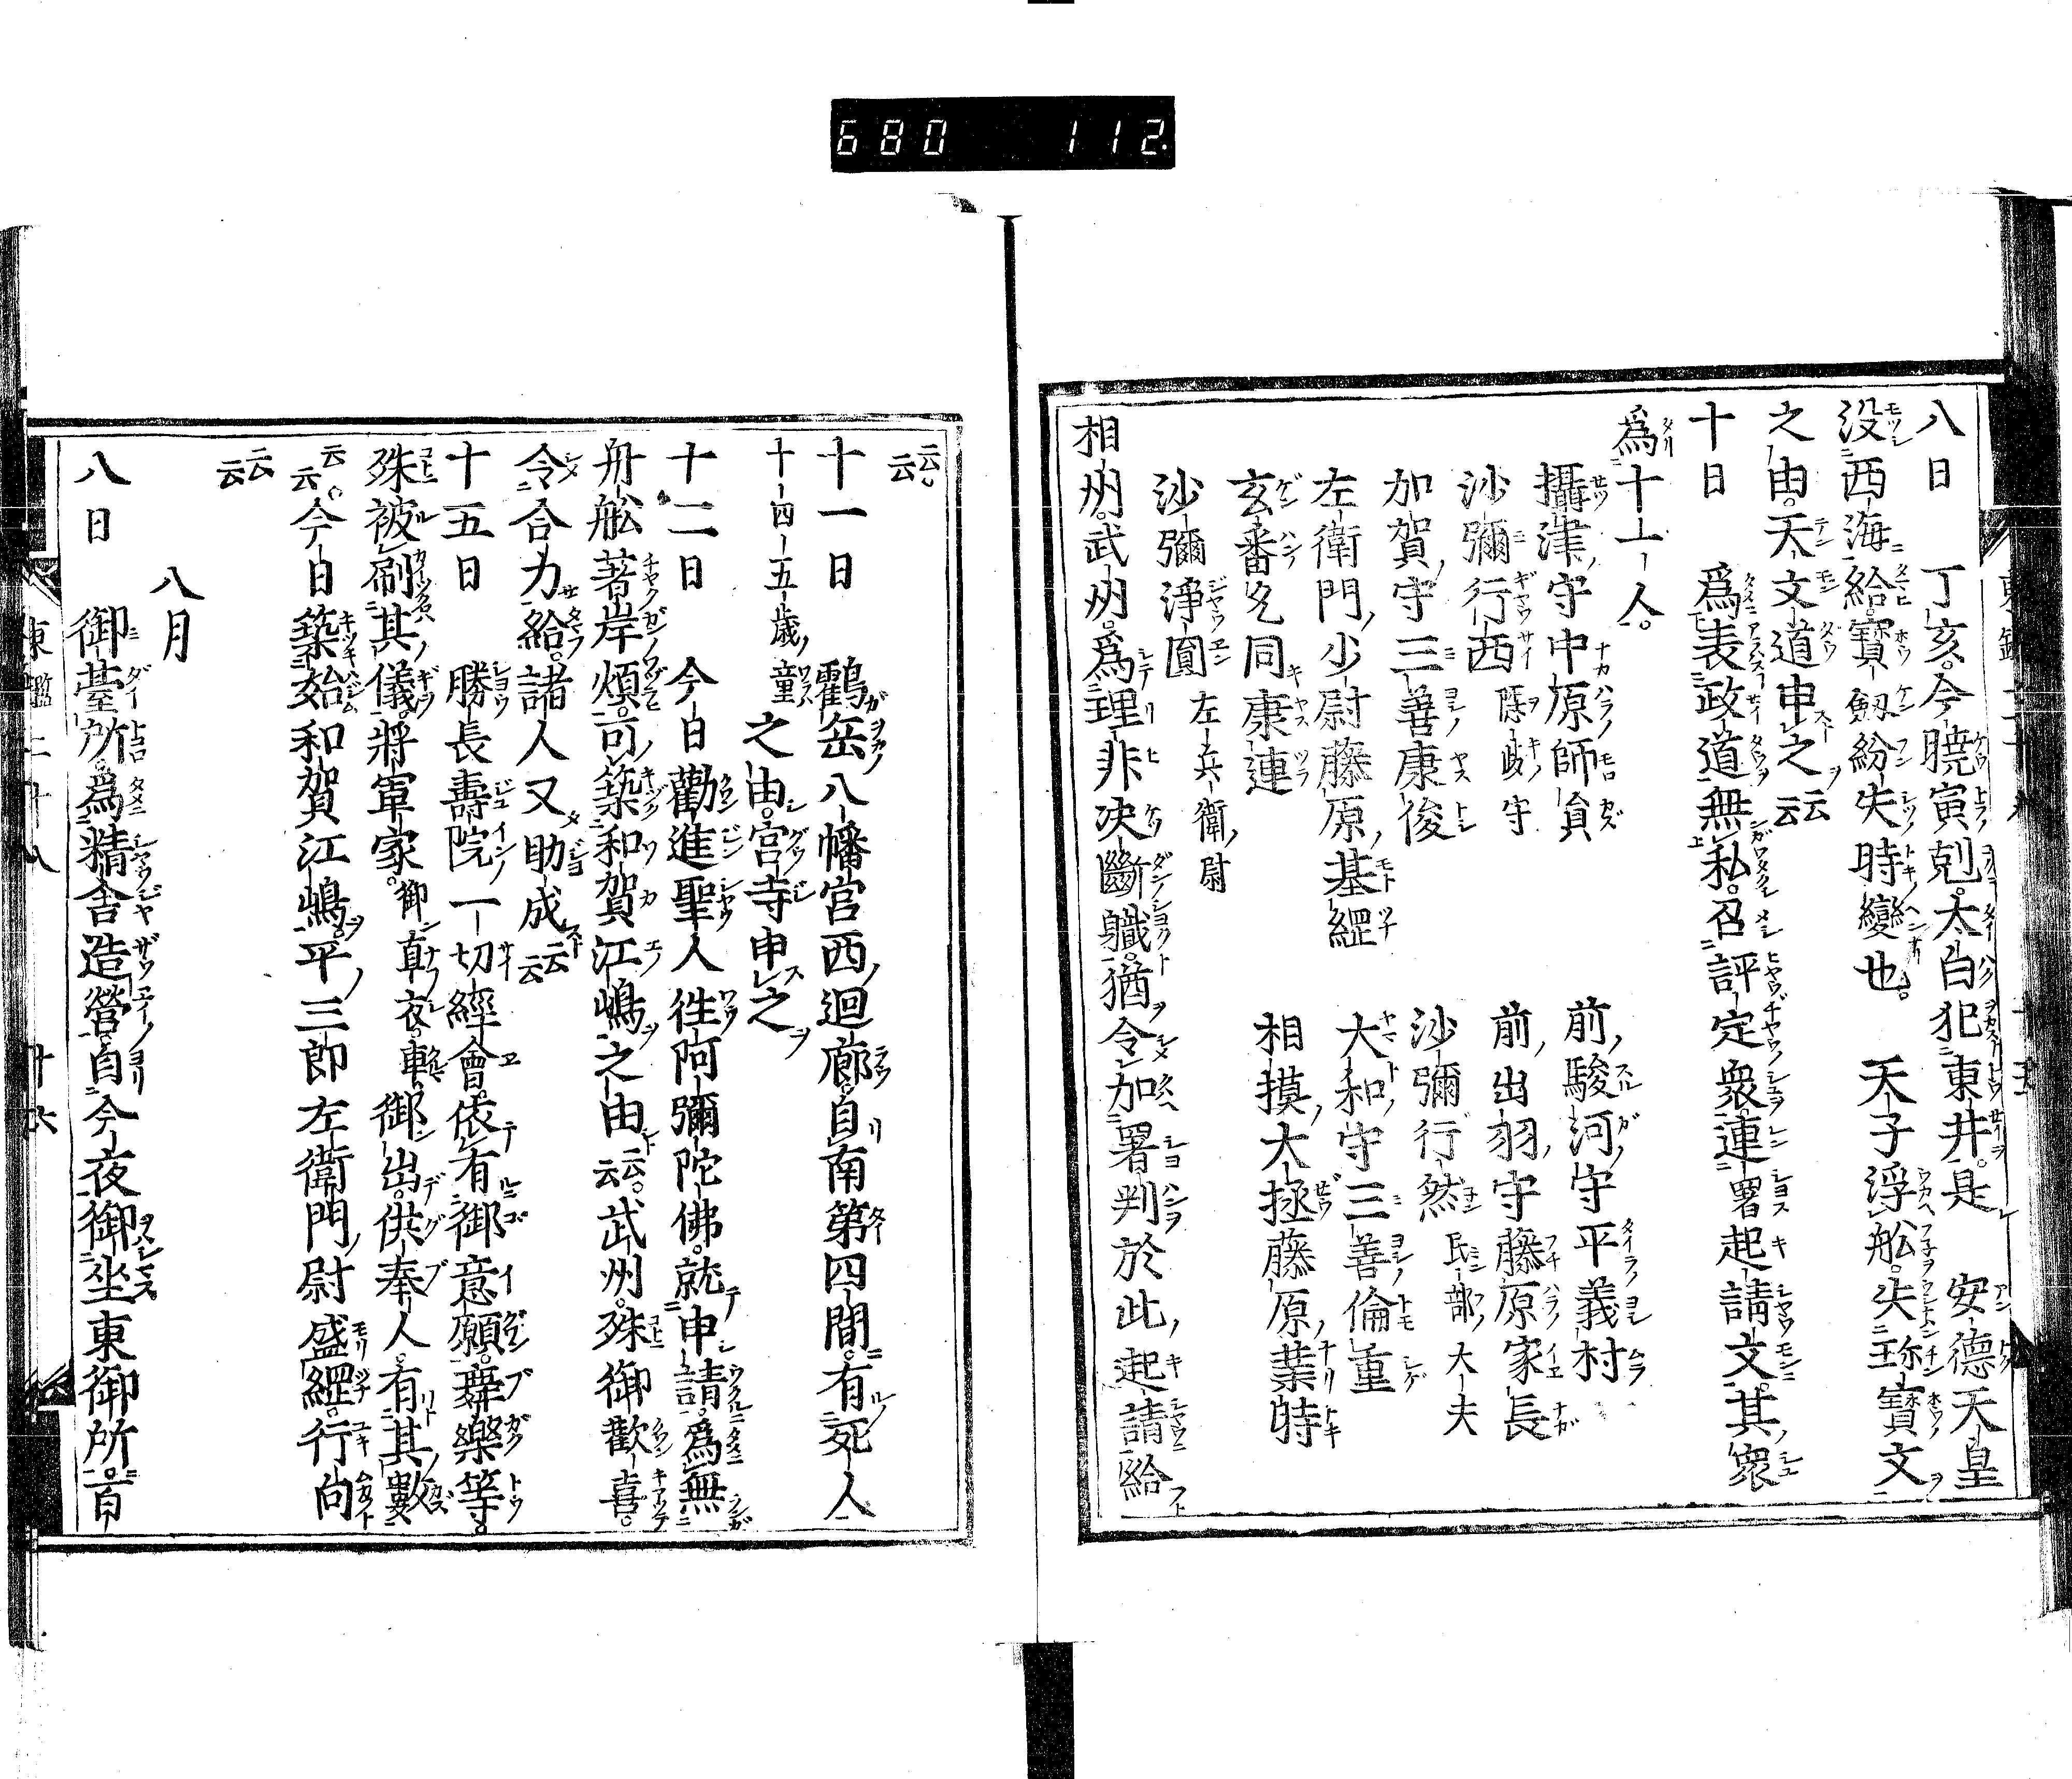 680 112
八日 丁亥。今曉寅剋。太白犯東井。是 安德天皇
没西海給。寶劔紛失時變也。 天子浮舩。失珎寶文
之由。天文道申之云云
十日 爲表政道無私。召評定衆連署起請文。其衆
爲十一人。
攝津守中原師員 前駿河守平義村
沙彌行西 隱岐守 前出羽守藤原家長
加賀守三善康俊 沙彌行然 民部大夫
左衛門少尉藤原基經 大和守三善倫重
玄番允同康連 相摸大掾藤原業時
沙彌淨圓 左兵衛尉
相州。武州。爲理非决斷職。猶令加署判於此起請給
云云。
十一日 鸖岳八幡宮西廻廊。自南第四間。有死人
十四五歳童 之由。宮寺申之
十二日 今日勸進聖人徃阿彌陀佛。就申請。爲無
舟舩著岸煩。可築和賀江嶋之由云云。武州。殊御歡喜。
令合力給。諸人又助成云云
十五日 勝長壽院一切經會。依有御意願。舞樂等。
殊被刷其儀。將軍家。御直衣。御車。 御出。供奉人。有其數
云云。今日築始和賀江嶋。平三郎左衛門尉盛經。行向
云云
八月
八日 御臺所。爲精舎造營。自今夜御坐東御所。百
東鑑二十八 十六